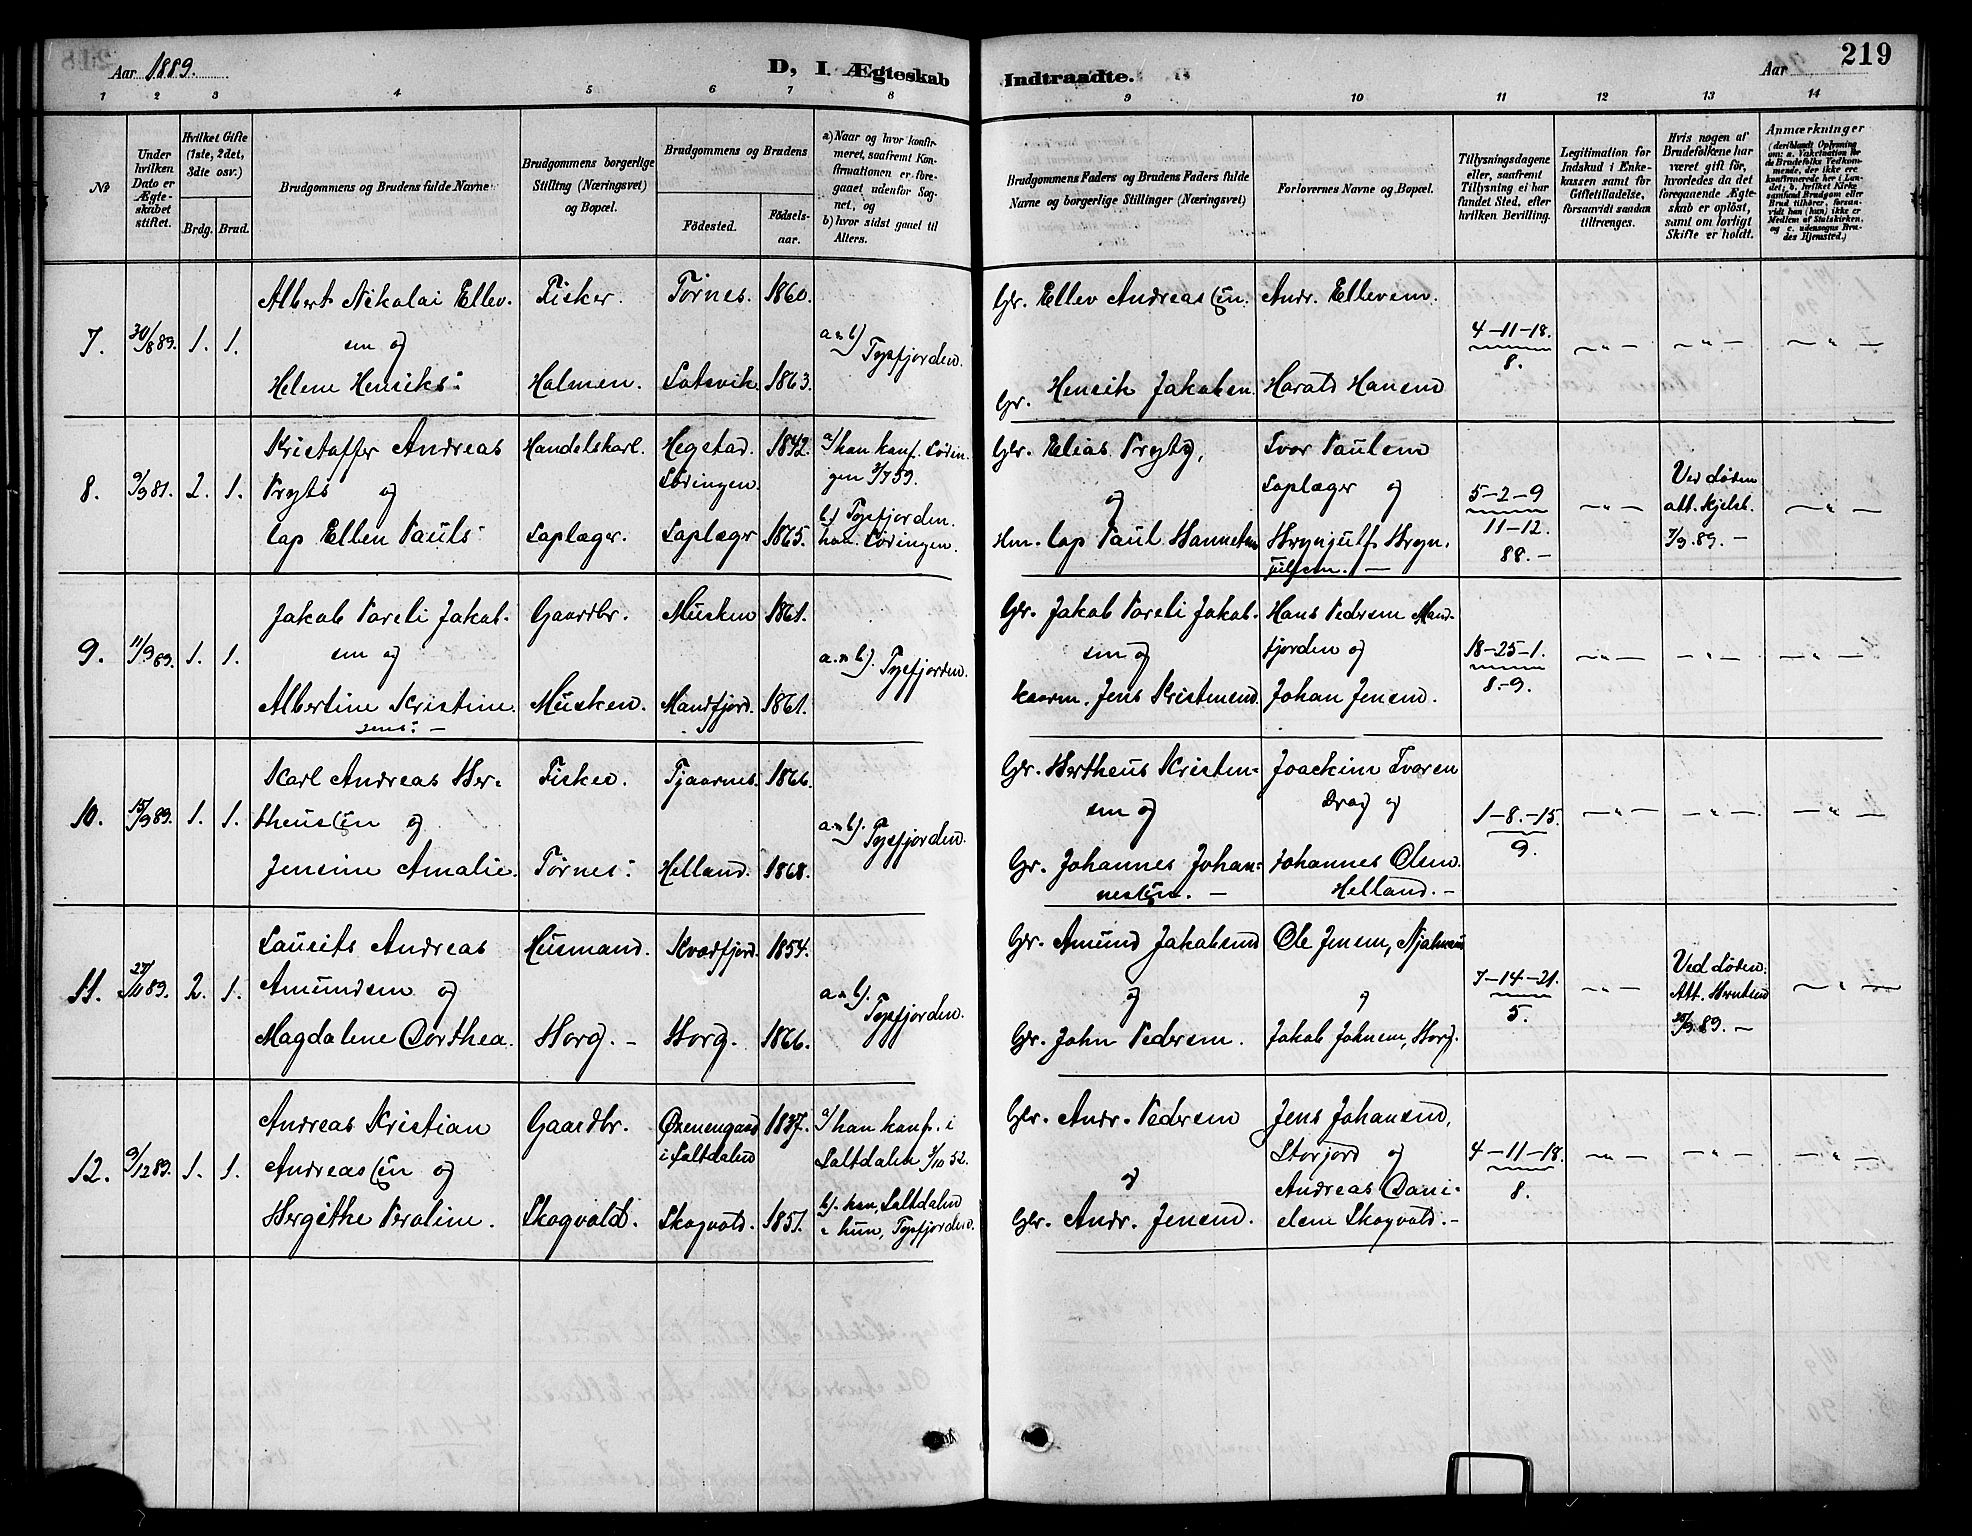 218
Aar 1889.
D, I. Ægteskab
Indtraadte.
Aar
219
1 2 3 4 5 6 7 8 9 10 11 12 13 14
No
Under hvilken Dato er Ægteskabet stiftet.
Hvilket Gifte (1ste, 2det, 3die osv.)
Brdg. Brud.
Brudgommens og Brudens fulde Navne
Brudgommens borgerlige Stilling (Næringsvei) og Bopæl.
Brudgommens og Brudens
Fødested.
Fødselsaar.
a) Naar og hvor konfirmeret, saafremt Konfirmationen er foregaaet udenfor Sognet, og
b) hvor sidst gaaet til Alters.
Brudgommens Faders og Brudens Faders fulde Navne og borgerlige Stillinger (Næringsvei)
Forlovernes Navne og Bopæl.
Tillysningsdagene eller, saafremt Tillysning ei har fundet Sted, efter hvilken Bevilling.
Legitimation for Indskud i Enkekassen samt for Giftetilladelse, forsaavidt saadan tiltrænges.
Hvis nogen af Brudefolkene har været gift før, hvorledes da det foregaaende Ægteskab er opløst, samt om lovligt Skifte er holdt.
Anmærkninger
7. 30/8 89. 1. 1.
Albert Nikolai Ellev. Fisker. Tørnes. 1860.
sen og
Helene Henriks: Holmen. 1863.
a. & b) Tysfjorden.
Gr. Ellev Andreassen. Andr. Ellevsen.
Gr. Henrik Jakobsen. Harald Hansen
4-11-18.
8.
8. 2. 1.
Kristoffer Andreas Handelskarl. Hegstad. 1842.
og Lødingen
lap Ellen Pauls: Laplæger. Laplæger 1865.
a/ han konf. Lødingen
b/ Tysfjorden.
han. Lødingen.
Gr. Elias
og
Hm. lap Paul
Ivar Paulsen
Laplæger og
5-2-9
11-12.
88.-
Ved døden
att. Kjelsb.
7/9.89.-
9. 11/9 89. 1. 1.
Jakob Pareli Jakob- Gaardbr. Musken 1861.
sen og
Albertine Kristine Musken. Mandfjord. 1861.
Jens: -
a. & b). Tysfjorden.
Gr. Jakob Pareli Jakob-
sen og
Jens Kristensen.
Hans Pedersen Mand-
fjorden og
Johan Jensen.
18-25-1.
8.-9.
10. 15/9 89. 1. 1.
Karl Andreas Ber- Fisker. Tjaarnes. 1866.
theussen og
Jensine Amalie. Tørnes: Helland. 1868.
a. & b). Tysfjorden.
Gr. Bertheus Kristen-
sen og
Gr. Johannes Johan-
nessen. -
Joachim Ivarsen
Drag og
Johannes Olsen.
Helland. -
1-8.-15.
9.
11. 27/10 89. 2. 1.
Laurits Andreas Husmand. Kvædfjord. 1854.
Amundsen og
Magdalene Dorthea. Horg. - Horg. 1866.
a. & b). Tysfjorden.
Gr. Amund Jakobsen
og
Gr. John Pedersen.
Ole Jensen,
og
Jakob Johnsen, Horg.
7-14-21.
5.
Ved døden.
Att.
89. -
12. 9/12 89. 1. 1.
Andreas Kristian Gaardbr. Øxnengaard 1837.
Andreassen og i Saltdalen
Bergithe Peroline. Skogvold. Skogvold. 1851.
a/ han konf. i
Saltdalen
b/. han, Saltdalen
& hun, Tysfjorden.
Gr. Andr. Pedersen
og
Gr. Andr. Jensen.
Jens Johansen,
Storjord og
Andreas Dani-
elsen Skogvold. -
4-11-18.
8.